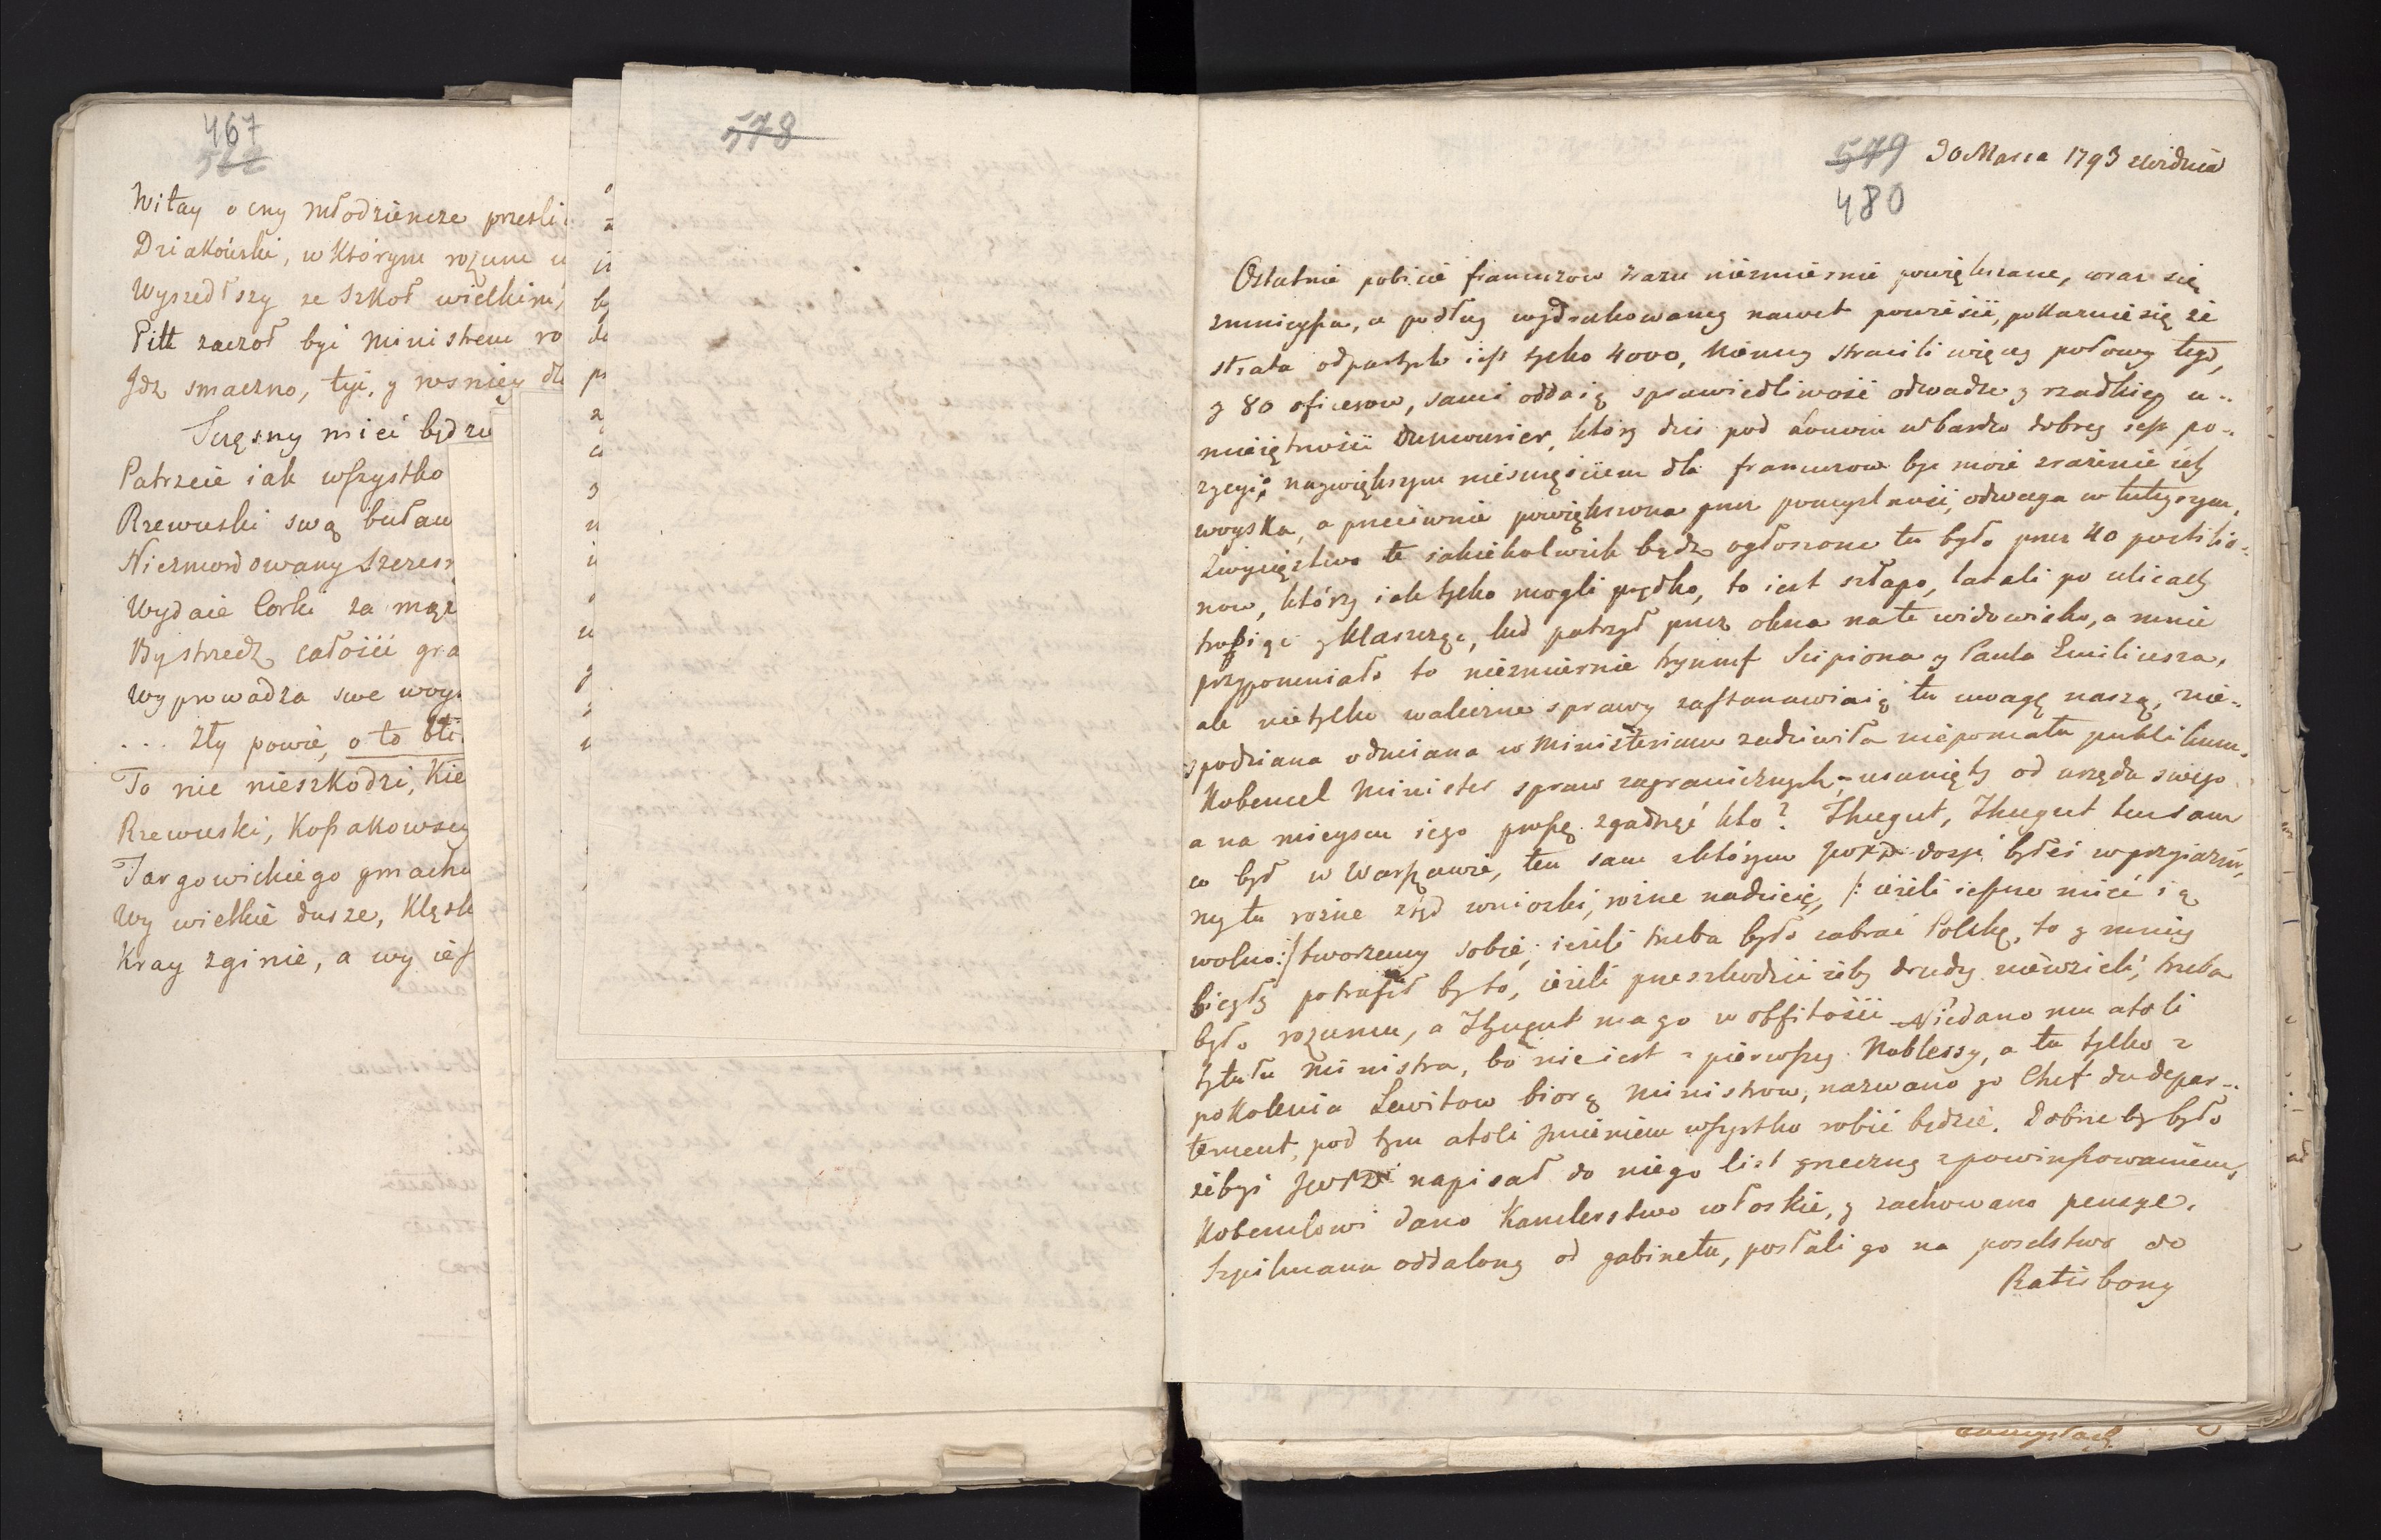 467
522
Witay o cny młodzieńcze prześli
Dziakoński, w którym rozum u
Wyszedłszy ze Szkoł wielkim
Pitt zaczoł być Ministrem ro
Jdz smaczno, tyi, y rosniey dl
Sczęsny mieć będzie
Patrzcie iak wszystko
Rzewuski swą buław
Niezmordowany Szczęsn
Wydaie Corki za męż
Bystrzedz całości gra
Wyprowadza swe woys
... Zły powie, o to
To nie nieszkodzi, Kie
Rzewuski, Kossakowscy
Targowickiego gmachu
Wy wielkie dusze, Klęsk
Kray zginie, a wy ies
578
579 30 Marca 1793 z Widnia
480
Ostatnie pobicie francuzow zrazu niezmiernie powiększane, coraz się
zmnieysza, a podług wydrukowaney nawet powieści, pokazuie się że
strata odpartych iest tylko 4000, Niemcy stracili więcey połowy tego,
y 80 oficerow, sami oddaią sprawiedliwość odwadze y rzadkiey u-
mieiętności Dumourier, który dziś pod Louvin w bardzo dobrey iest po-
zycyi; naywiększym nieszczęściem dla francuzow być może zrażenie ich
woyska, a przeciwnie powiększona przez pomyślność, odwaga w tuteyszym.
Zwycięztwo te iakiekolwiek bądz ogłoszone tu było przez 40 postilio-
now, którzy iak tylko mogli prędko, to iest szłapo, latali po ulicach
trąbiąc y klaszcząc, lud patrzył przez okna na te widowisko, a mnie
przypomniało to niezmiernie tryumf Scipiona y Paula Emiliusza.
ale nie tylko waleczne sprawy zastanawiaią tu uwagę naszą, nie-
spodziana odmiana w Ministerium zadziwiła niepomału publikum.
Kobencel Minister spraw zagranicznych, usunięty od urzędu swego
a na mieyscu iego proszę zgadnąć kto? Thugut, Thugut ten sam
co był w Warszawie, ten sam z którym dosyć byłeś w przyiaźni,
my tu rożne ztąd wnioski, rożne nadzieie, /: ieżeli ieszcze mieć ią
wolno:/ tworzemy sobie; ieżeli trzeba było zabrać Polskę, to y mniey
biegły potrafił by to, ieżeli przeszkodzić żeby drudzy niewzieli, trzeba
było rozumu, a Thugut ma go w obfitości. Niedano mu atoli
tytułu Ministra, bo nie iest z pierwszey Noblessy, a tu tylko z
pokolenia Lewitow biorą Ministrow, nazwano go Chef du depar-
tement, pod tym atoli Jmieniem wszystko robić będzie. Dobrze by było
żebyś napisał do niego list grzeczny z powinszowaniem,
Kobenclowi dano Kanclerstwo włoskie, y zachowano pensye.
Szpilmann oddalony od gabinetu, posłali go na poselstwo do
Ratisbony